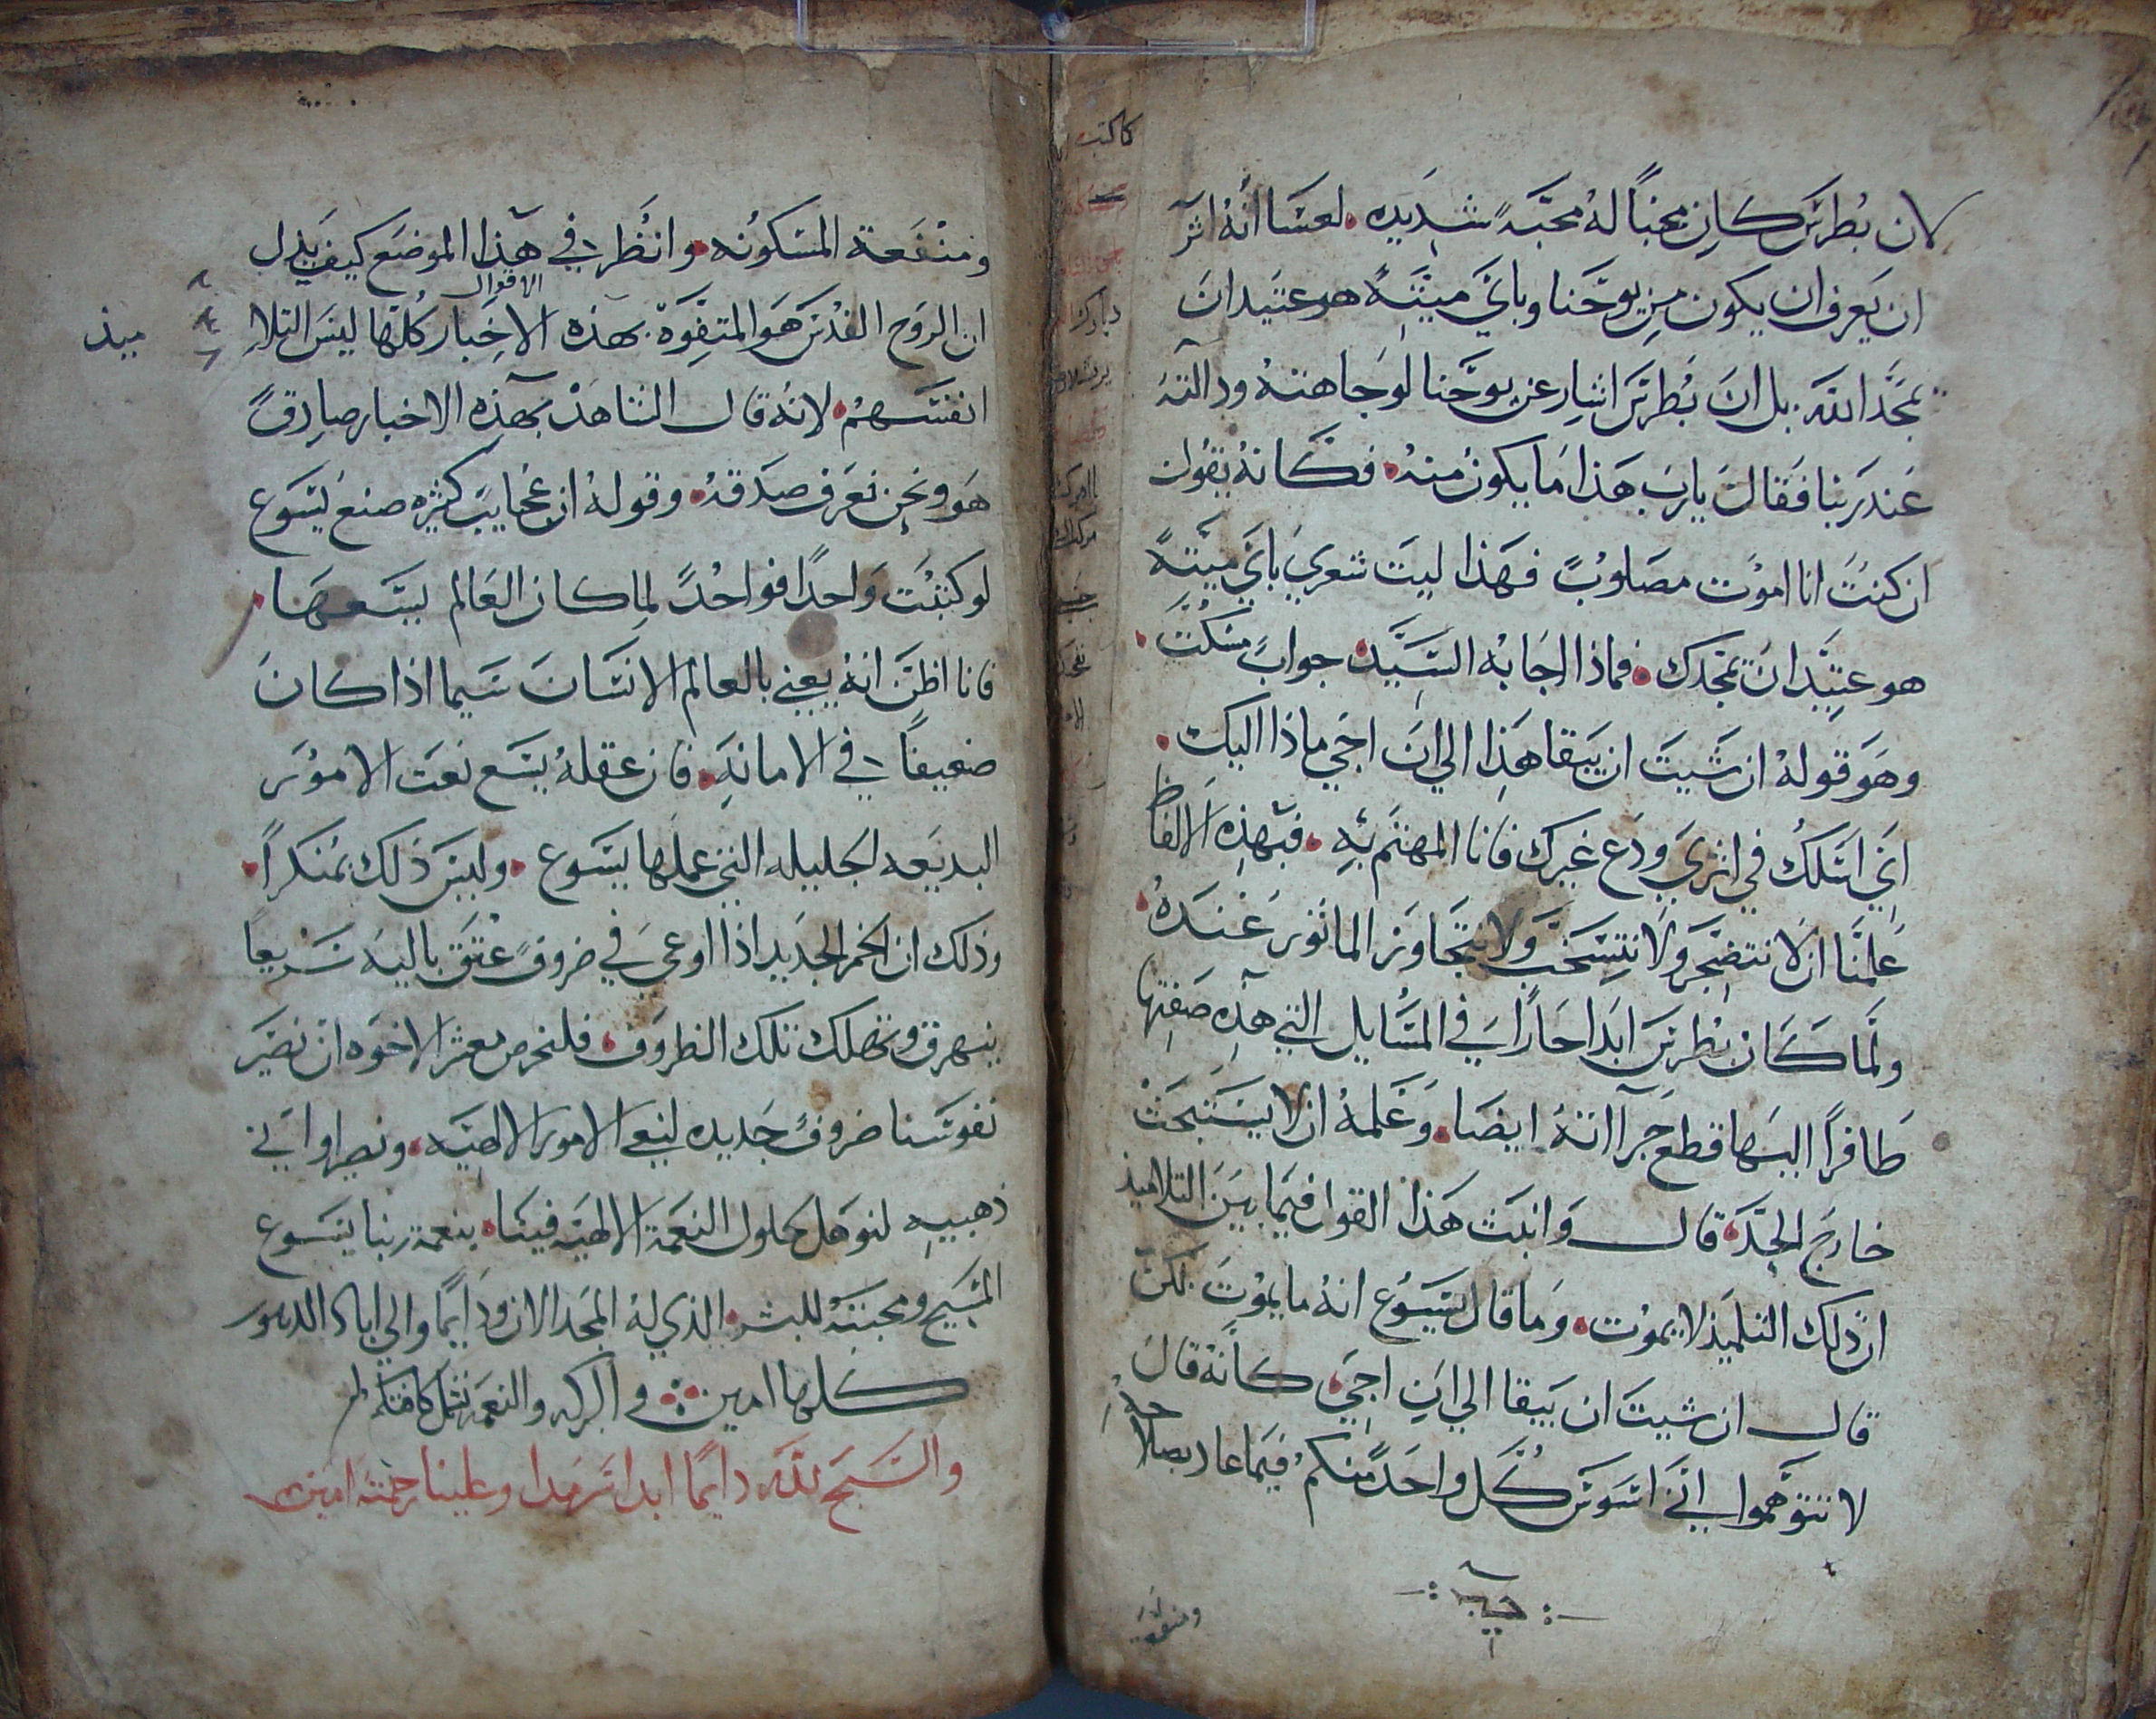 لان بُطرس كان محباً لهُ محبَّةٍ شديده. لعسَا انهُ اثرَ
ان يَعرف ان يكون من يوحَنا وباَيَّ ميتةً هو عتيد انَ
يمجَّد اللَه. بل انَ بُطرسَ اشار عن يوحَنا لوجاهتهُ ودالتهُ
عَند رَبنا فقالَ يارب هَذا مَا يكونُ منهُ. فكَانهُ يقولَ
ان كنتُ انا اموُت مصَلوبً فهَذا ليتَ شعري باَي ميتةً
هو عتيَّد انَ يمَجدك. فماذا اجَابهُ السَيَّد جوابً مسَكتَ.
وهَوَ قولهُ ان شيتَ ان يَبقا هَذا الي انَ اجَي ماذا اليكَ.
اَيَ اسَلكُ في اثري ودَع غيرك فانا المهتم بَهِ. فبَهذِه الالفاظ
عَلمنَا ان لا نتضَجر وَلا نتِسَخبَ وَلا نتجَاوز الماثور عَندهُ
ولمَا كَان بطرسَ ابَداَ حَاراً في المسَايل التي هَذِه صَفتها
طَافراً اليَها قطع جَرآاتهُ ايضَا. وعَلمهُ ان لا يَستبحَثَ
خارج الحِدَّ قال وَانبَث هَذا القول فيَما بيَن التلاميذ
ان ذلك التلمَيذ لا يموُت. وَما قال يسَوُع انهُ ما يموُتَ لكنَ
قال ان شيتَ ان يَبقا الي انِ اجَيَ كانهُ قالَ
لا تتوَهَموا انيَ اسَوسَ كُلَّ واحَدً منكمُ فيَما عاد بصلاحهِ
ومنفعة
ومَنْفعة المسَكوُنه. وانظُر في هَذا الموضَع كيف يدل
ان الروَح القدس هَو المتفِوَه بهَذِه الاخِبار كُلها ليسَ التلا
الاقوال
ميذ
انفسَهمُ. لانهُ قال الشاهدْ بهَذِه الاخبار صادِقً
هَو ونحن نعَرف صدَقهُ. وقولهُ ان عَجايبَ كثيره صنعُ يسَوع
لو كتبتَ وَاحداً فواحدً لمِا كان العَالم يسَعهَا.
فانا اظنَ انهُ يعني بالعالم الانسَانَ سَيما اذا كانَ
ضعيفاً في الامانهِ. فان عقلهُ يسَع نعَت الاموُر
البديعَه الجَليله التي عملها يسَوع. وليسَ ذلك بمنكراً.
وذلك ان الخمر الجديد اذا اوعيَ في ضروفً عُتقَ باليهَ سَريعاً
ينهرق وتهلك تلك الظروَف. فلنحرص معشر الاخوه ان نصَيرَ
نفوسَنا ضروفً جَديده لنعي الامور الالهيَه. ونصير اوانَي
ذهبيهِ لنوهَل لحلول النعَمة الالهيَة فينَا. بنعمة ربنا يسَوع
المسَيح ومحبتهُ للبشر. الذي لهُ المَجد الان ودَايماً والي اباد الدهور
كلها امين والبركه والنعمَه تشمل كافتكم
والسَبح للَه دايماً ابدا سَرمدا وعلينا رحمتهُ امين